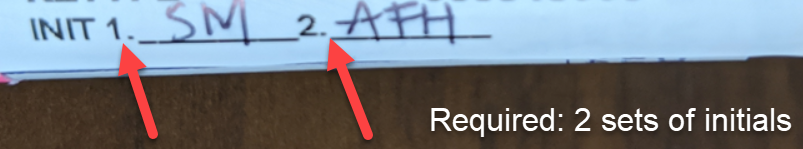 INIT 1. SM 2. AFH
Required: 2 sets of initials